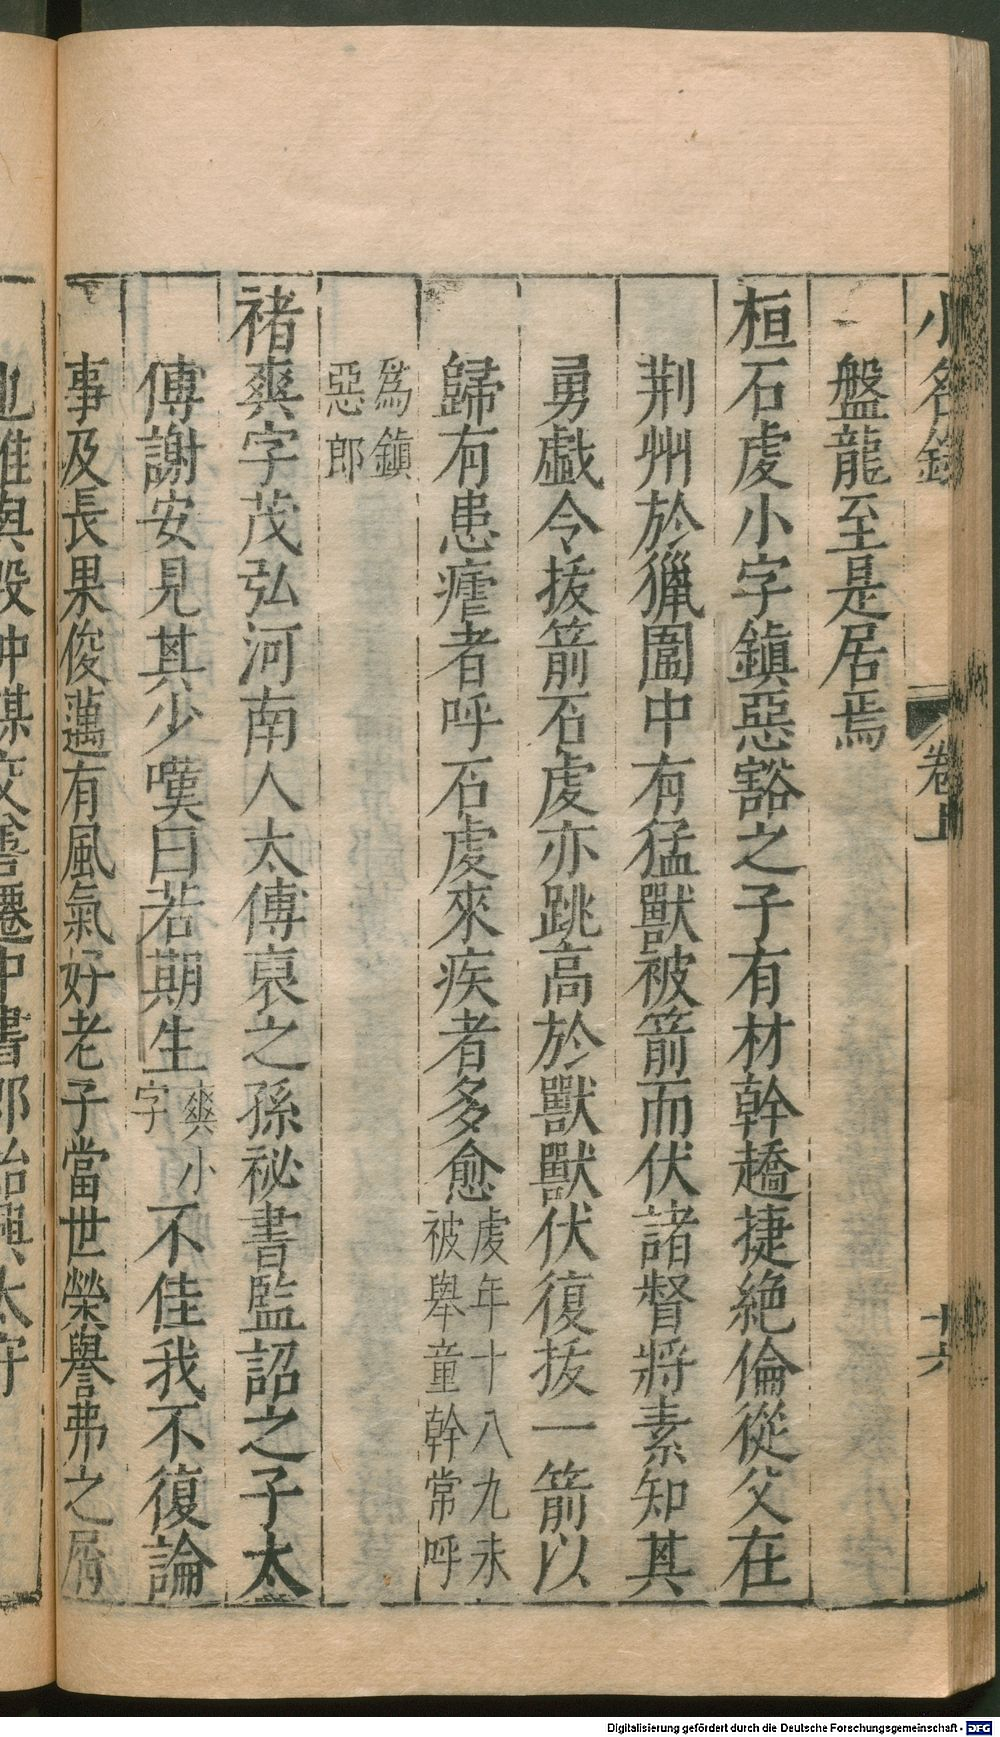 小名錄 卷上 十六
盤龍至是居焉
桓石虔小字鎮惡豁之子有材幹趫捷絕倫從父在
荆州於獵圍中有猛獸被箭而伏諸督將素知其
勇戲令拔箭石虔亦跳高於獸獸伏復拔一箭以
歸有患瘧者呼石虔來疾者多愈虔年十八九未被舉童幹常呼
爲鎭惡郎
褚爽字茂弘河南人太傅裒之孫祕書監詔之子太
傅謝安見其少嘆曰若期生爽小字不佳我不復論
事及長果俊邁有風氣好老子當世榮譽弗之屑
Digitalisierung gefördert durch die Deutsche Forschungsgemeinschaft - DFG